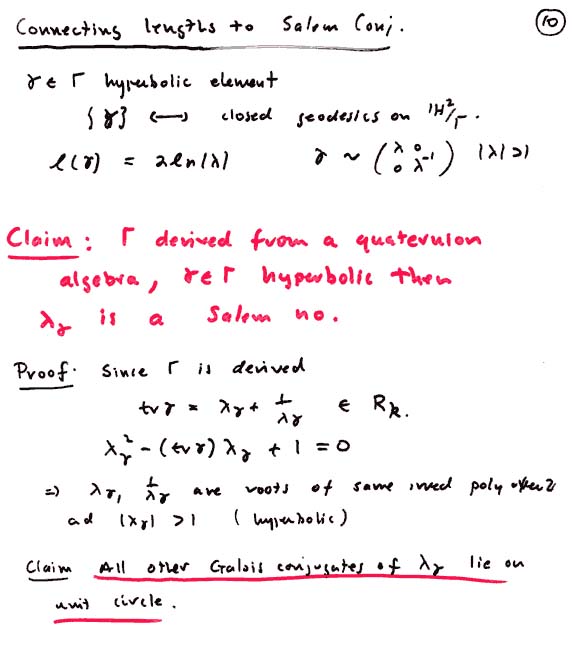 Connecting lengths to Salem Conj.
10
γ ∈ Γ hyperbolic element
{γ} ⟷ closed geodesics on ℍ²/Γ.
ℓ(γ) = 2ln|λ| γ ~ (λ 0 0 λ⁻¹) |λ|>1
Claim: Γ derived from a quaternion
algebra, γ∈Γ hyperbolic then
λ_γ is a Salem no.
Proof. Since Γ is derived
tr γ = λ_γ + 1/λ_γ ∈ R_k.
λ_γ² - (tr γ) λ_γ + 1 = 0
⇒ λ_γ, 1/λ_γ are roots of same irred poly over ℤ
ad |λ_γ| > 1 (hyperbolic)
Claim All other Galois conjugates of λ_γ lie on
unit circle.